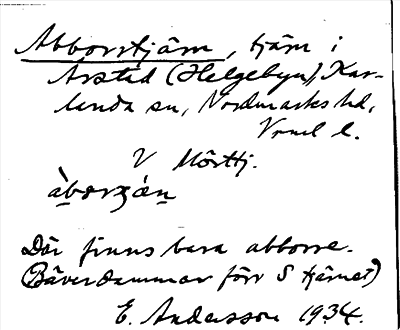 Abborrtjärn, tjärn i
Årstad (Helgebyn) Kar-
landa sn, Nordmarks hd,
Vrml l.
V Mörttj.
Där finns bara abborre.
(Bäverdammar förr S tjärnet)
E. Andersson 1934.